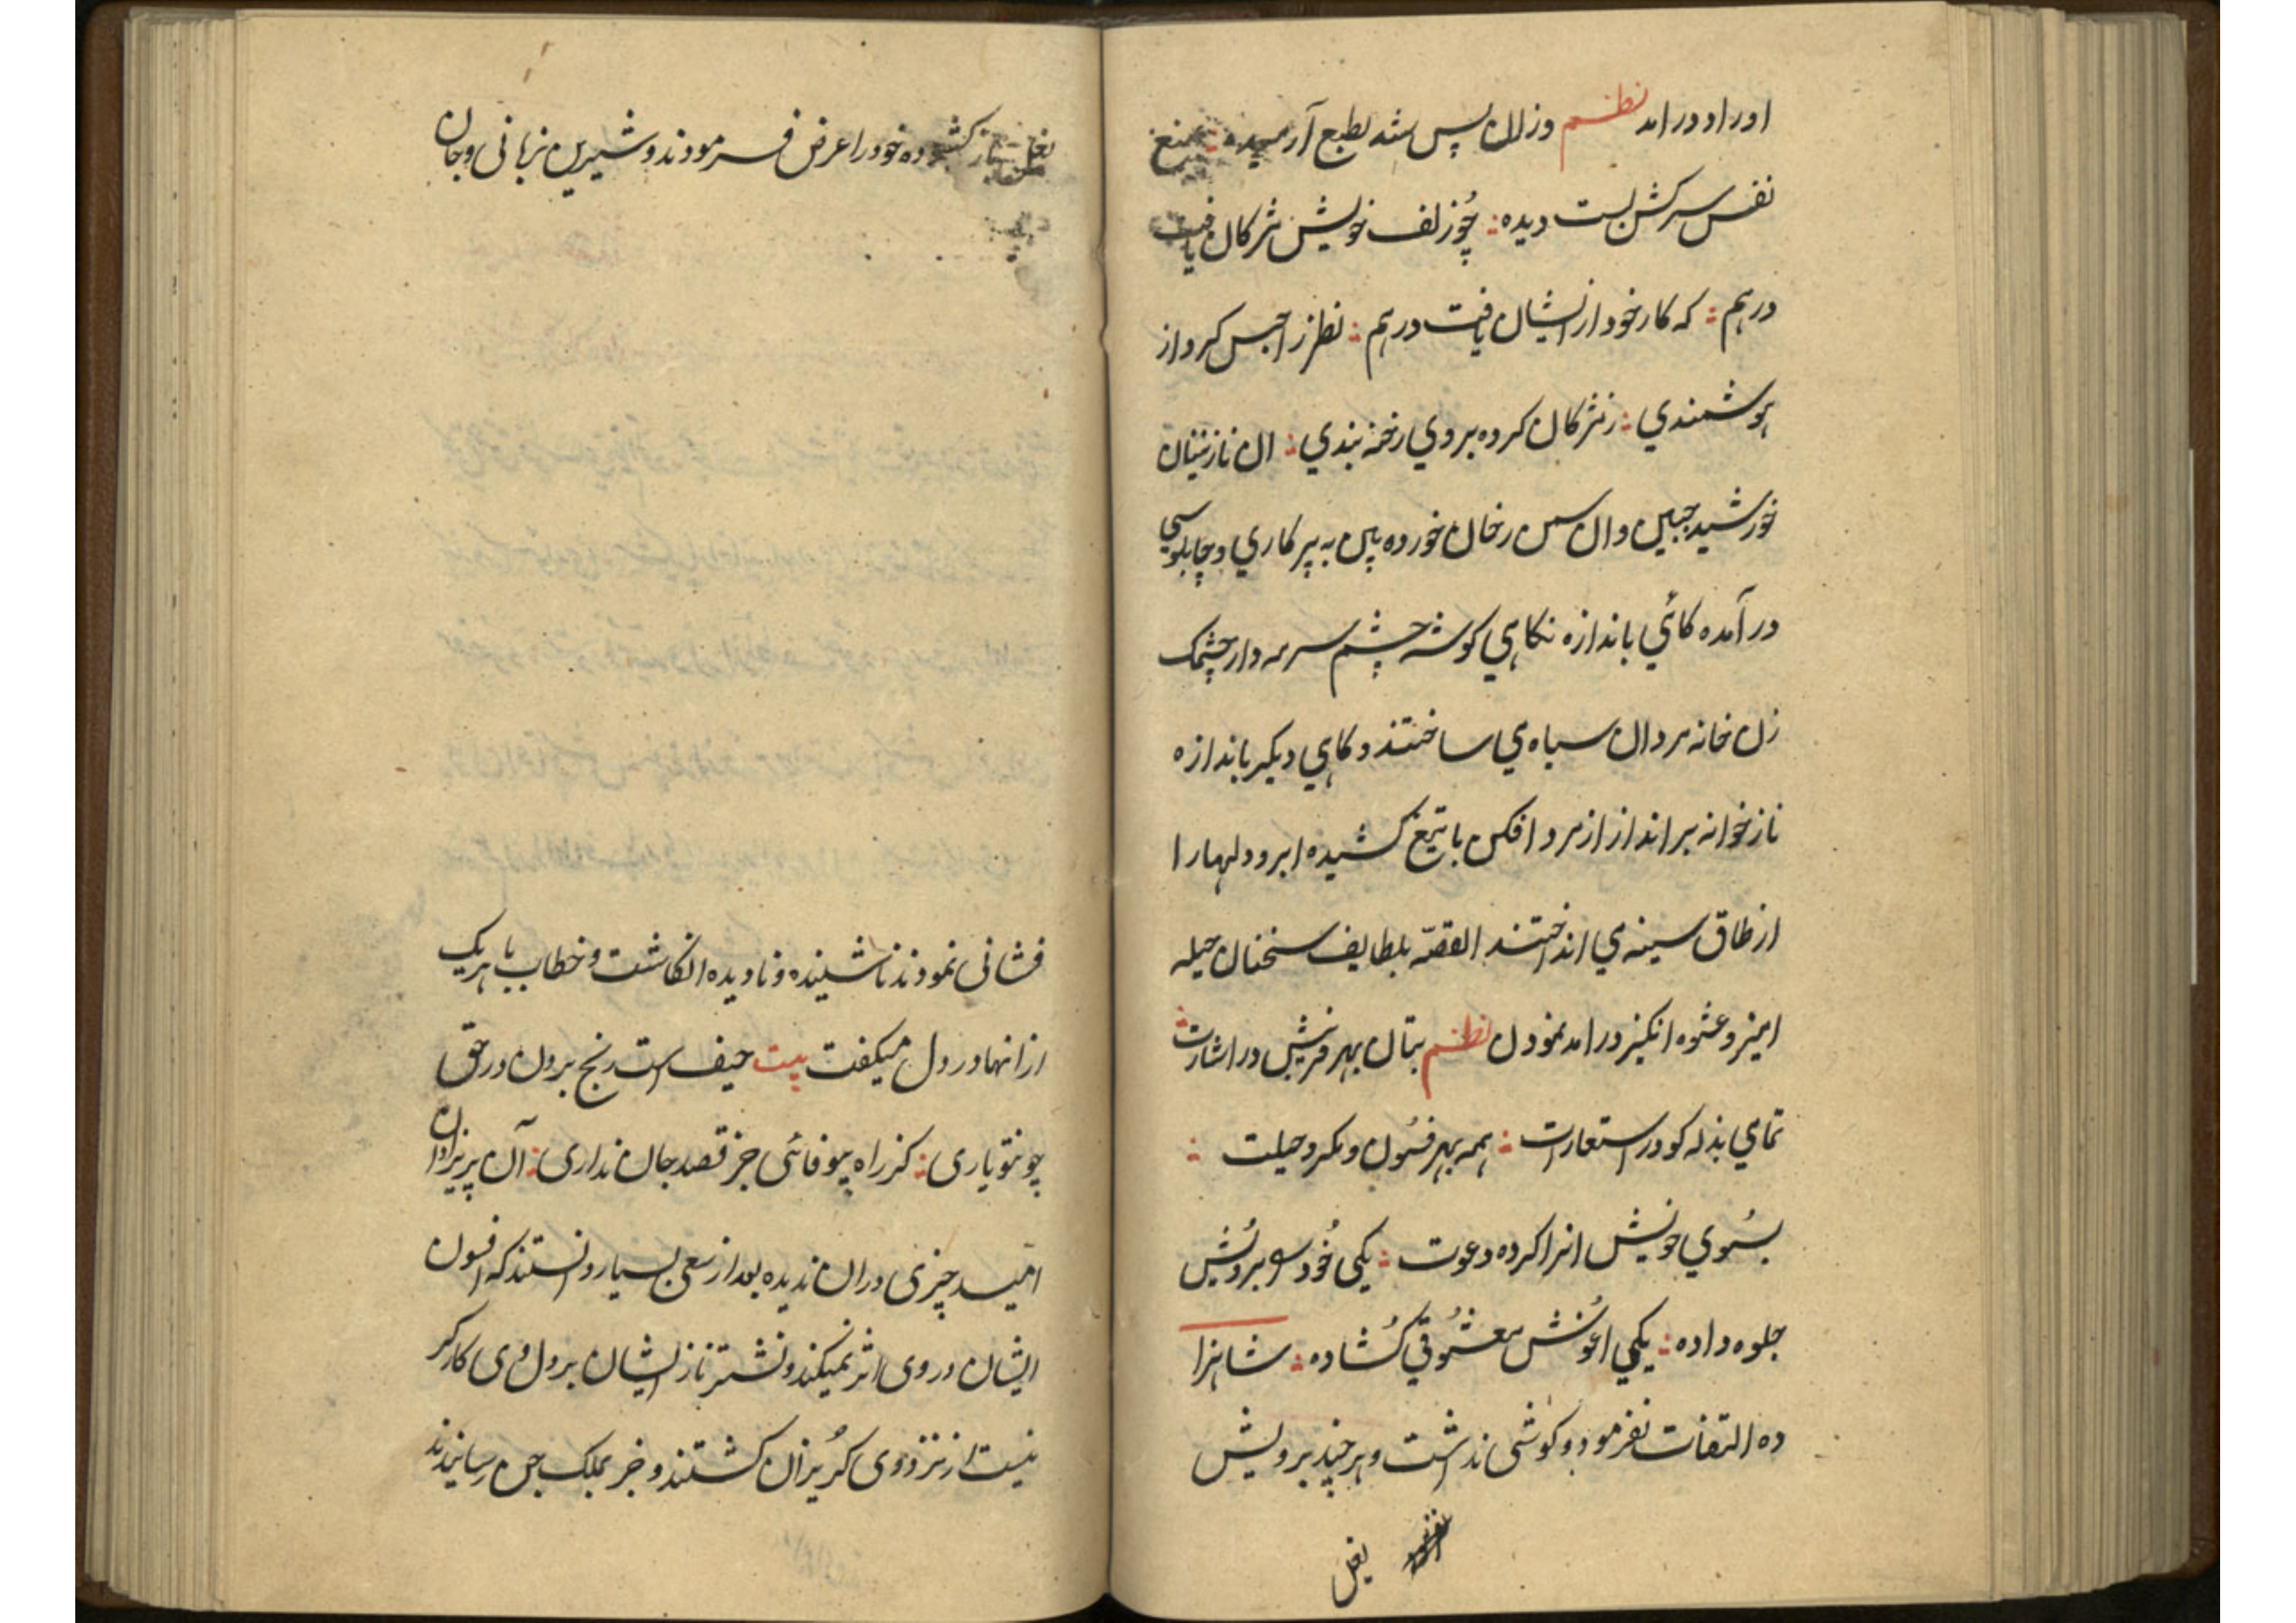 اوراد درامد نظم وزلال پس شد بطبع آرمیده : بمنع
نفس سرکش بست دیده : چو زلف خویش مژکان یافت
درهم : که کار خود از ایشان یافت درهم : نظر را حبس کرد از
هوشمندی : ز مژکان کرده بر وی رخنه بندی : ان نازنینان
خورشید جبین وان رخان خورده بین به پرکاری و چاپلوسی
در آمده کائی باندازه نکاهی کوشه چشم سرمه دار چشمک
زن خانه مردان سیاه می ساختند و کاهی دیکر باندازه
ناز خوانه برانداز از مرد افکن با تیغ کشیده ابرو دلهارا
از طاق سینه می انداختند القصّه بلطایف سخنان حیله
امیز و عشوه انکیز درامد نمودن نظم بتان بهر فریبش در اشارت :
تمامی بذله کو در استعارت : همه بهر فسون و مکر و حیلت :
بسوی خویش انرا کرده دعوت : یکی خود را برویش
جلوه داده : یکی اغوش معشوقی کشاده : شاهزا
ده التفات نفرمود و کوشی نداشت و هرچند برویش
بغل
بغل باز کشوده خود را عرض فرمودند و شیرین زبانی و جان
فشانی نمودند ناشینده و نادیده انکاشت و خطاب با هریک
ازانها در دل میکفت بیت حیف است رنج بردن در حق
چو تو یاری : کز راه بیوفائی جز قصد جان نداری : آن پریزادان
امید چیزی دران ندیده بعد از سعی بسیار دانستند که افسون
ایشان در وی اثر نمیکند و نشتر ناز ایشان بر دل وی کارکر
نیست از نزد وی کریزان کشتند و خبر بملک جن رسانیدند